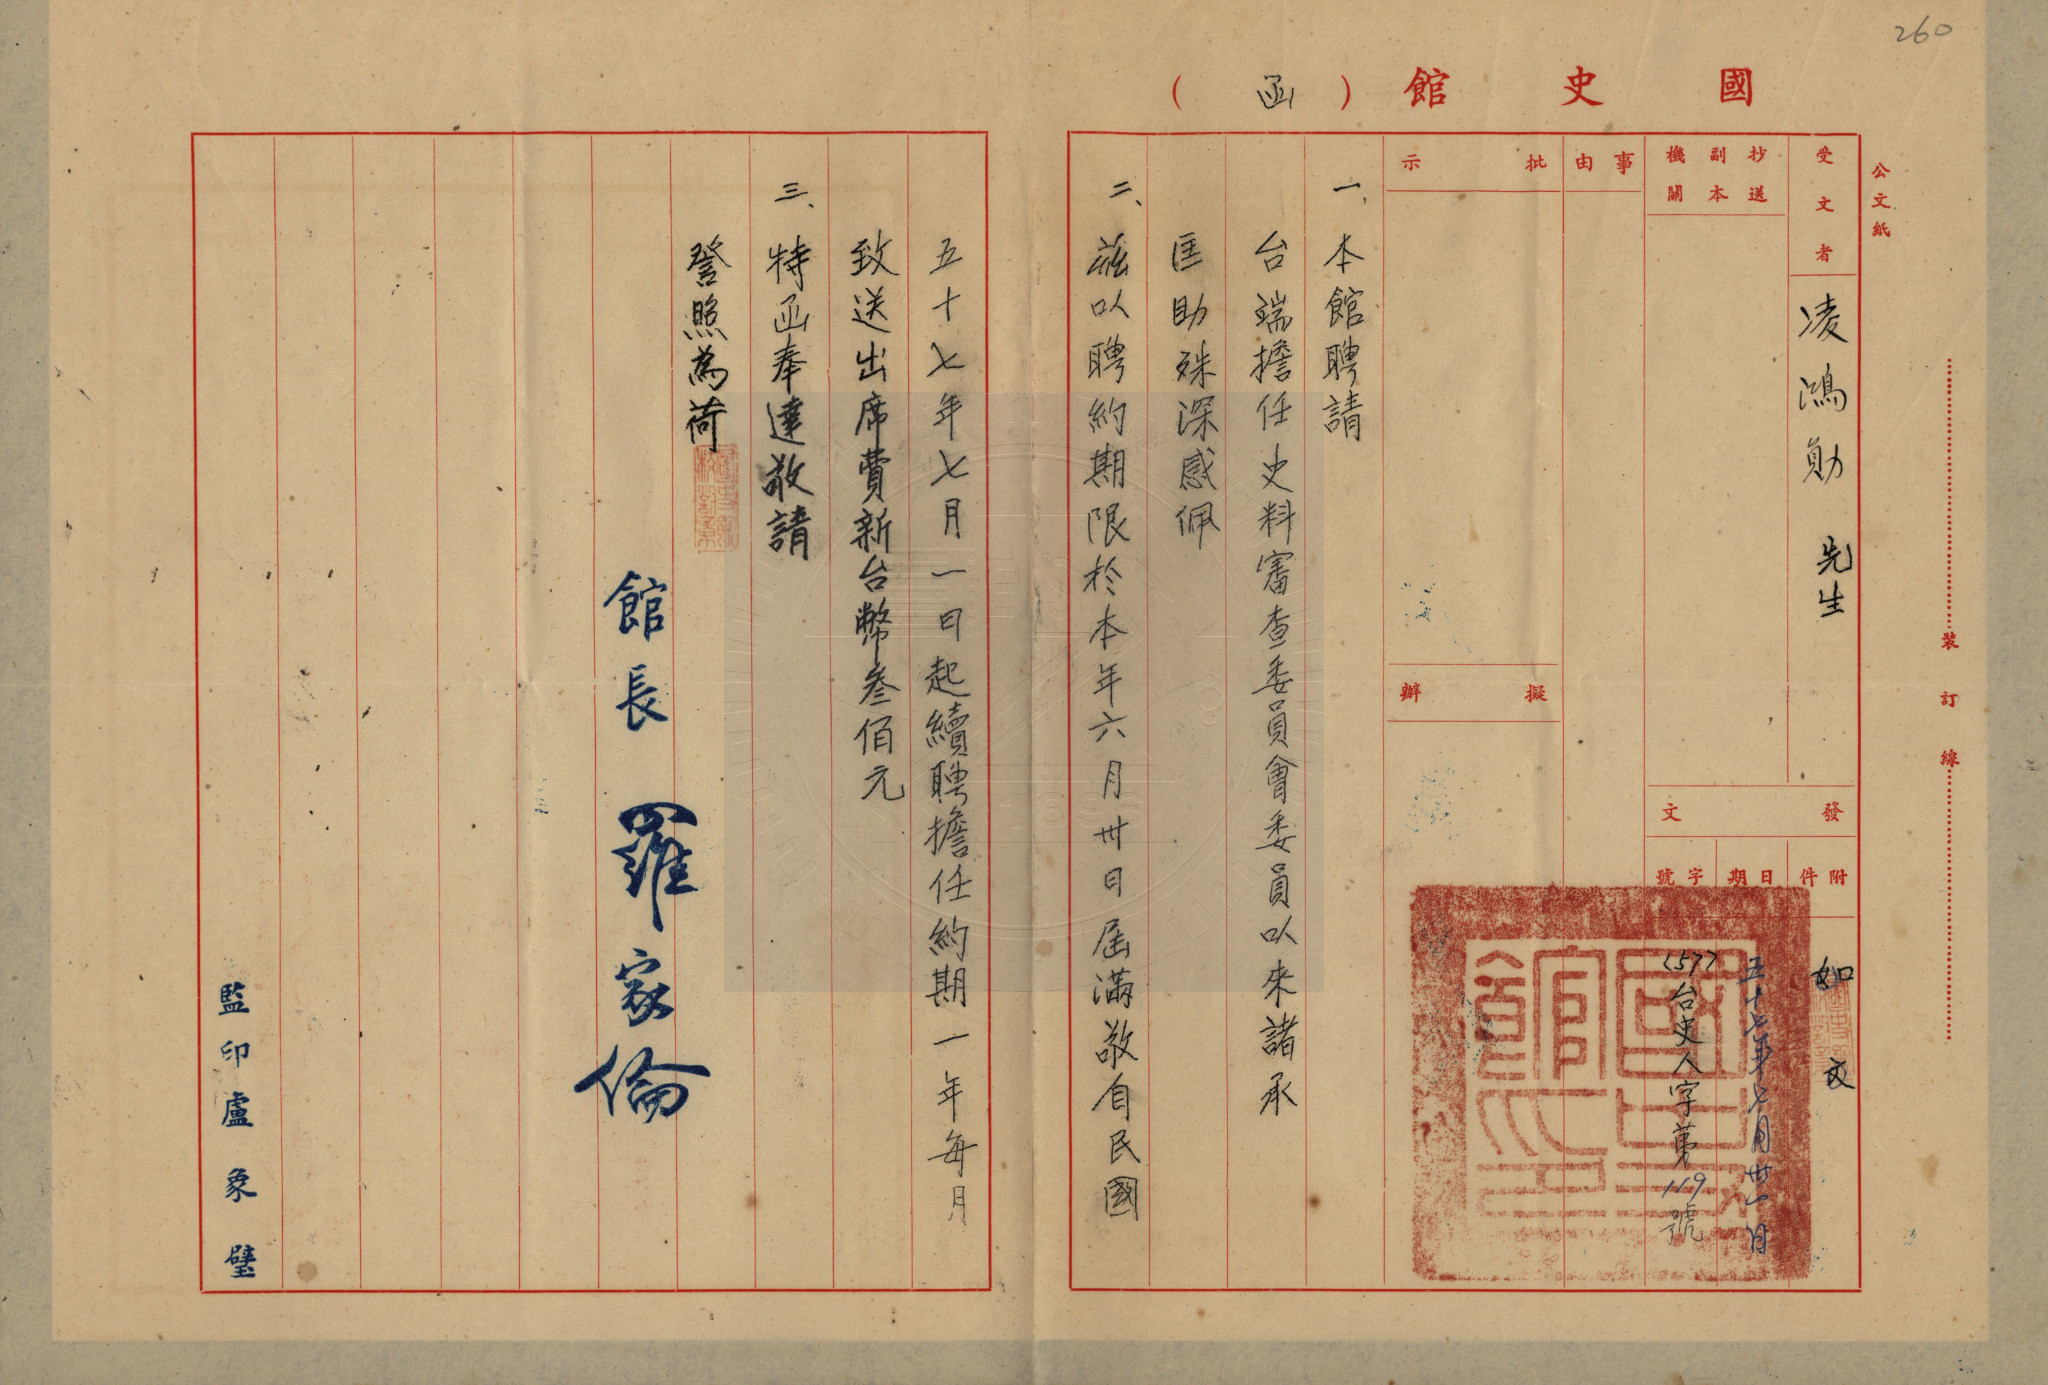 260
國史館（函）
公文紙
裝訂線
受文者
凌鴻勛 先生
抄送副本機關
事由
批示
擬辦
發文
附件
如文
日期
五十七年七月卅一日
字號
(57)台史人字第119號
國史館之印
一、本館聘請
台瑞擔任史料審查委員會委員以來諸承
匡助殊深感佩
二、茲以聘約期限於本年六月卅日屆滿敬自民國
五十七年七月一日起續聘擔任約期一年每月
致送出席費新台幣叁佰元
三、特函奉達敬請
詧照為荷
館長 羅家倫
監印盧象璧